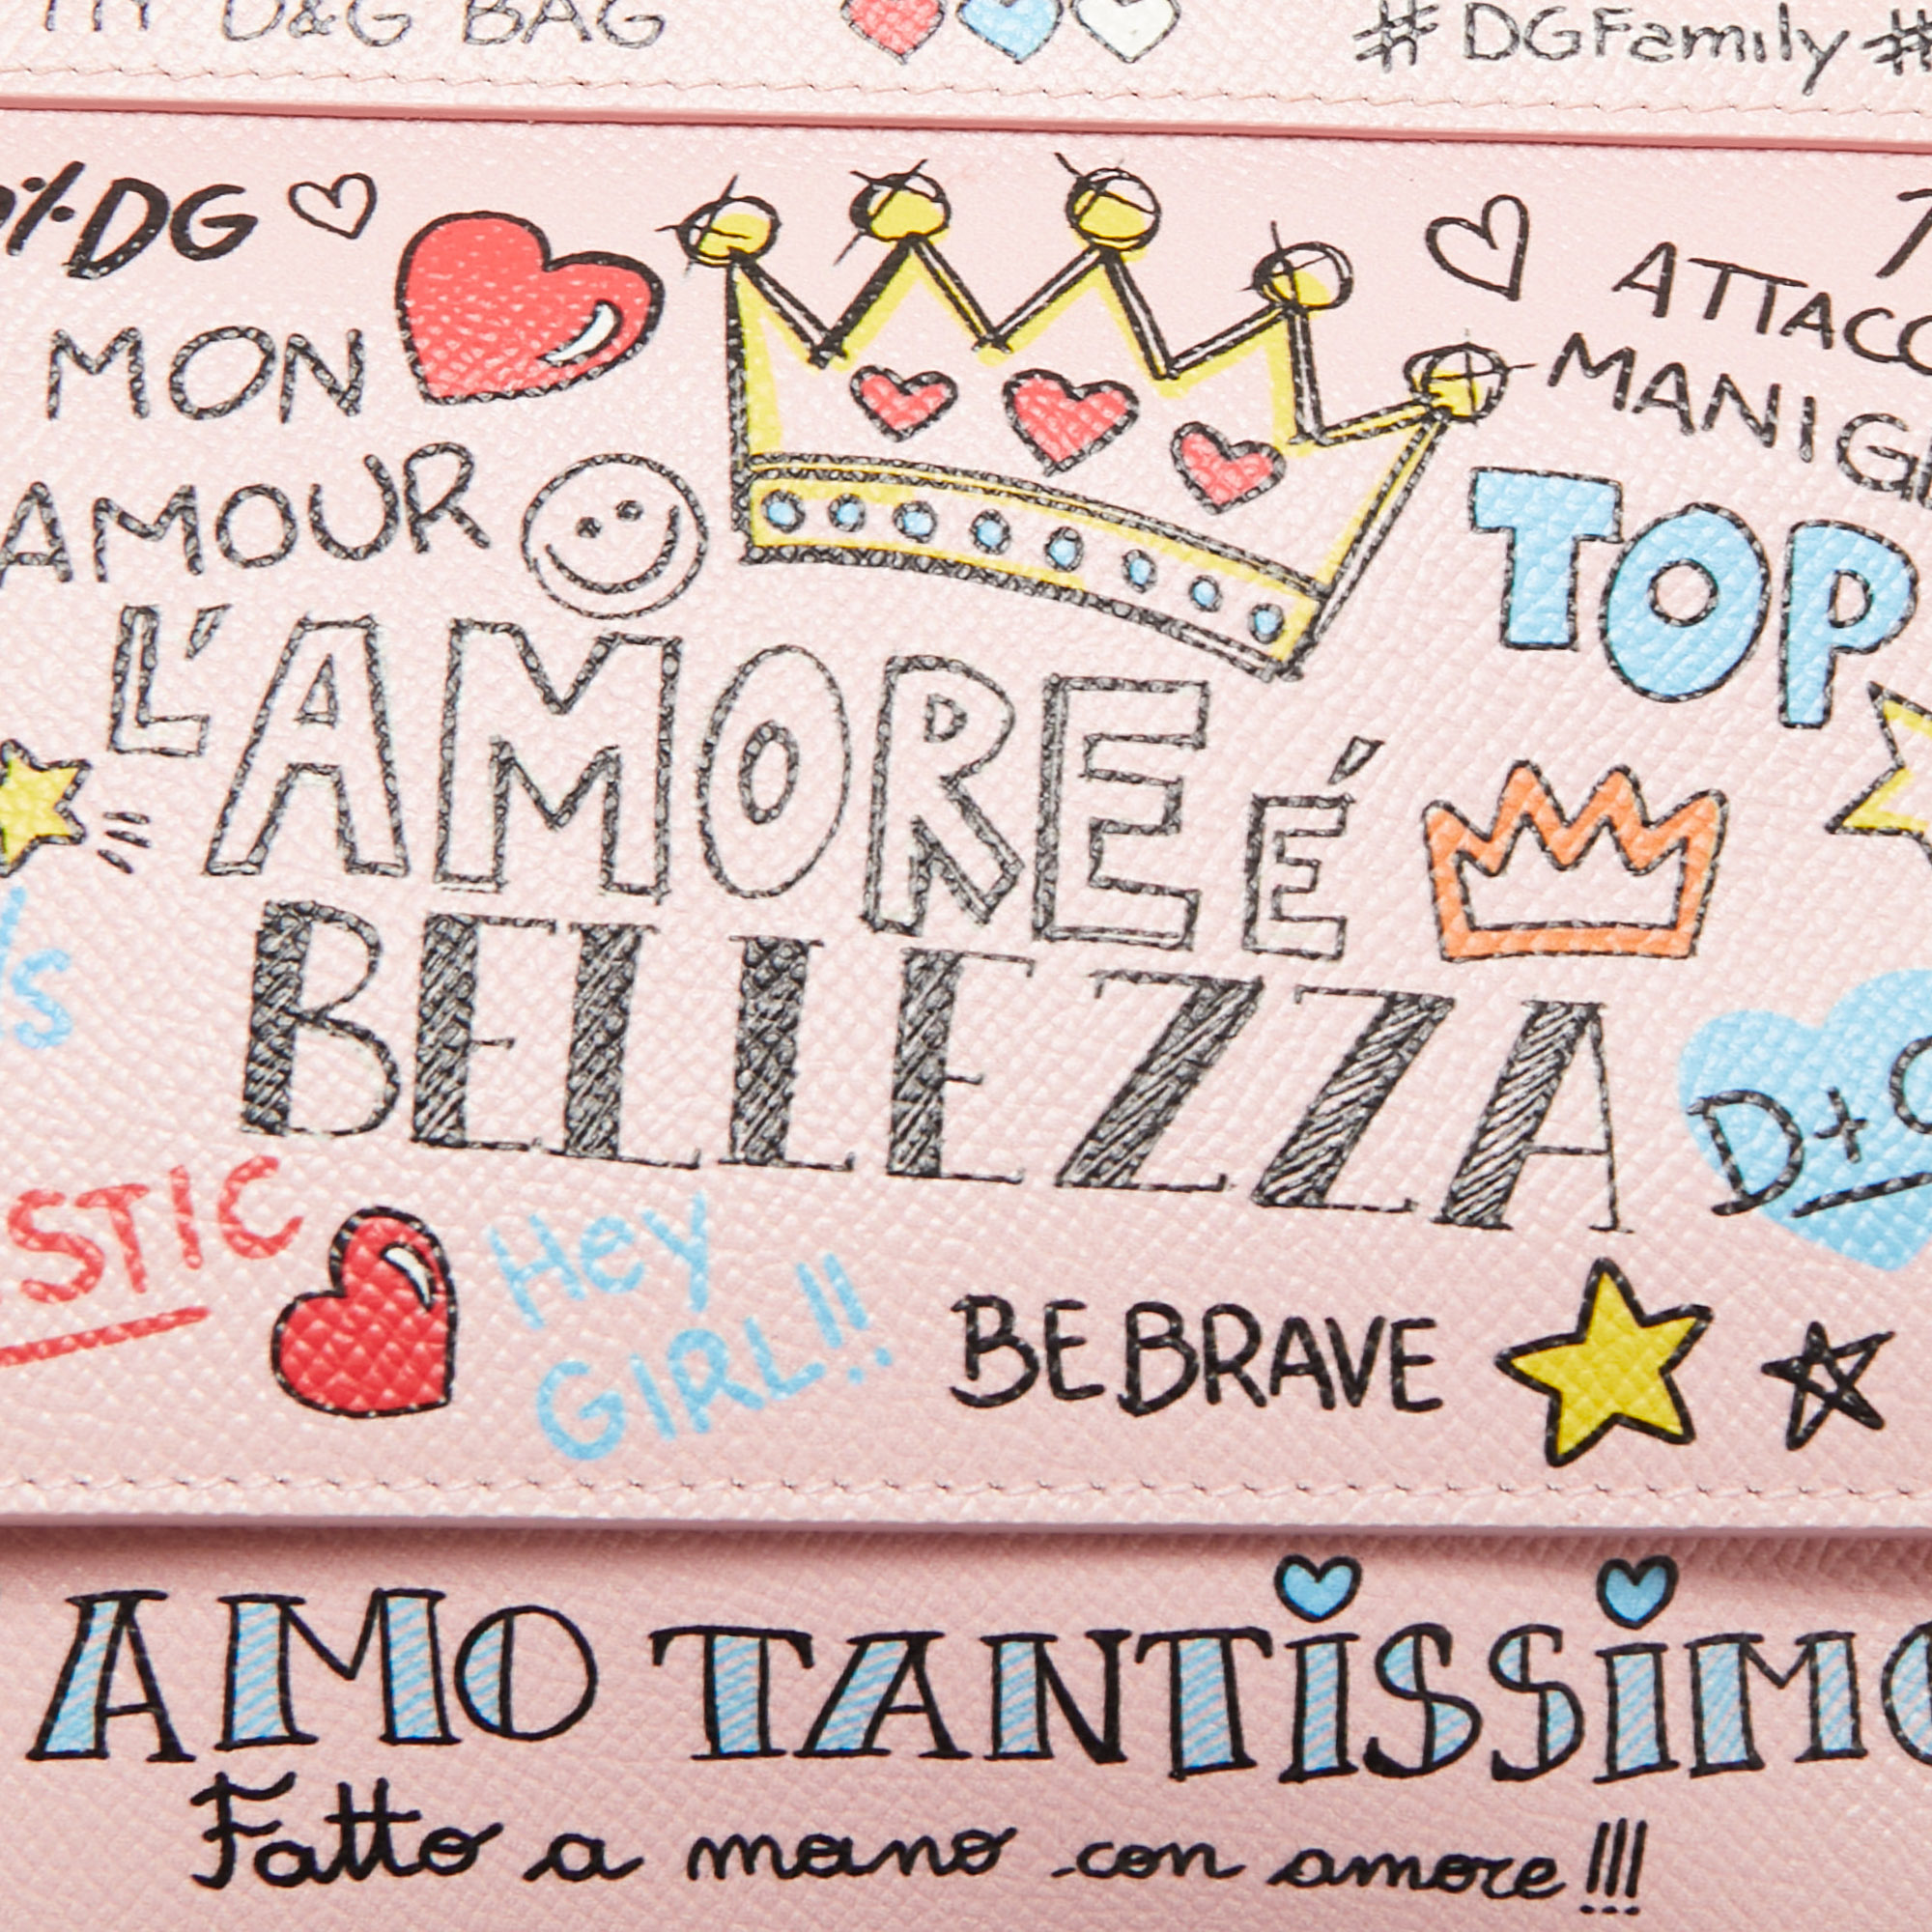 D&G BAG
#DGFamily #
%DG
MON
AMOUR
ATTACC
MANIGL
TOP
L'AMORE É
BELLEZZA
D+G
STIC
Hey
GIRL!!
BE BRAVE
AMO TANTiSSiMO
Fatto a mano con amore!!!